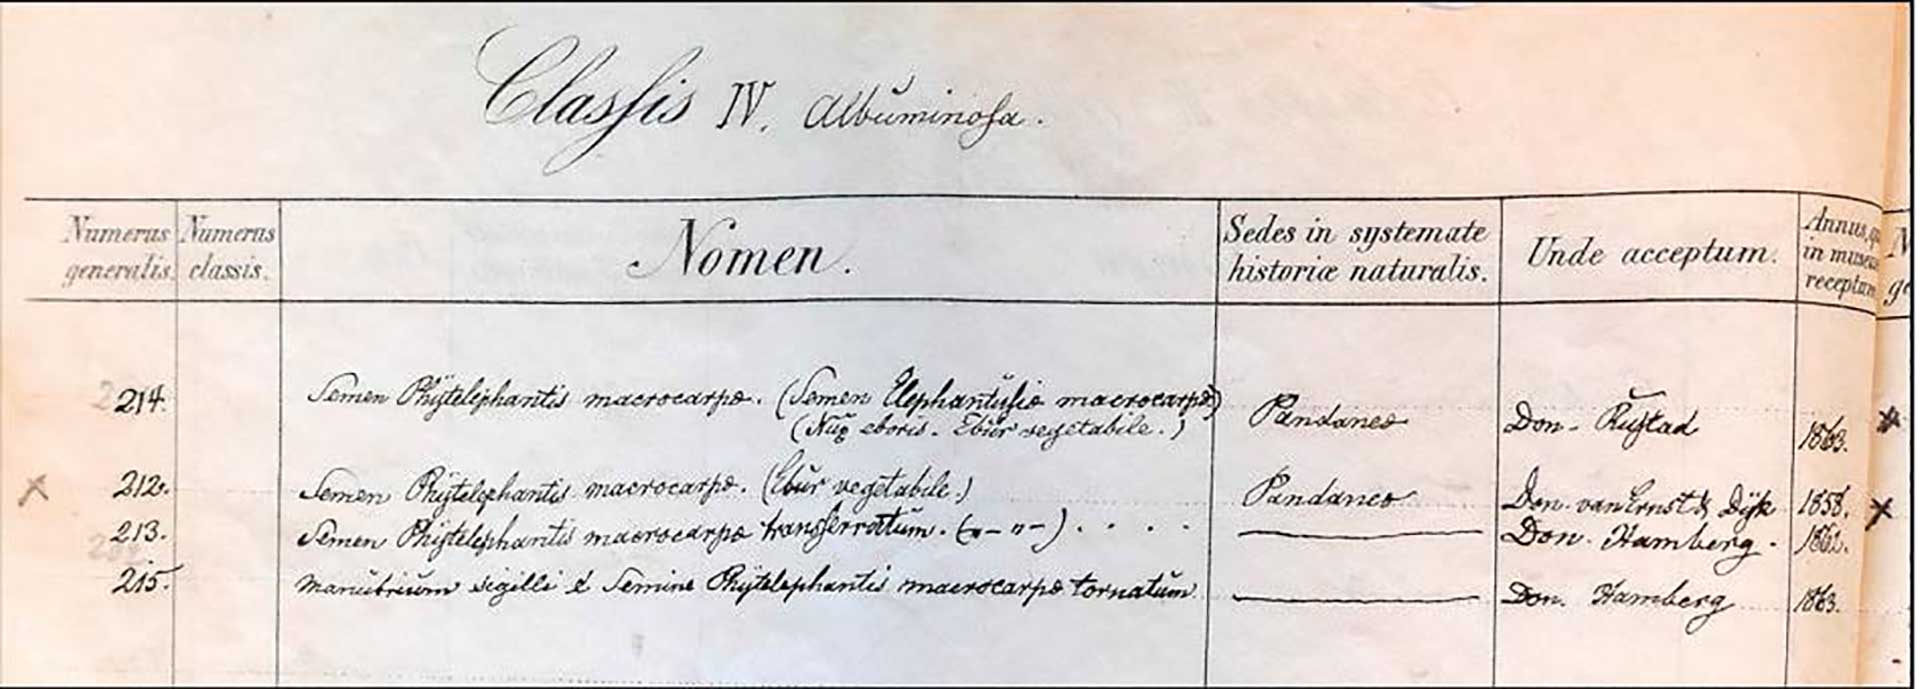 Classis IV. Albuminosa.
Numerus generalis. Numerus classis. Nomen. Sedes in systemate historiæ naturalis. Unde acceptum. Annus, in museum receptum
214. Semen Phÿtelephantis macrocarpæ. (Semen Elephantusiæ macrocarpæ)
(Nux eboris. Ebur vegetabile.) Pandaneæ Don. 1863.
212. Semen Phÿtelephantis macrocarpæ. (Ebur vegetabile.) Pandaneæ Don. van Ernst & Dÿk 1858.
213. Semen Phÿtelephantis macrocarpæ (〃—〃—) Don. Hamberg.
215. Manubrium sigilli e Semine Phÿtelephantis macrocarpæ tornatum. Don. Hamberg 1863.